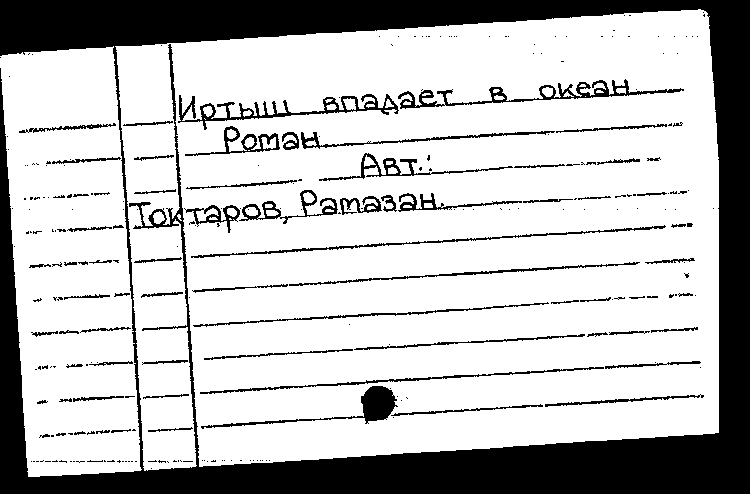 Иртыш впадает в океан
Роман.
Авт.:
Токтаров, Рамазан.